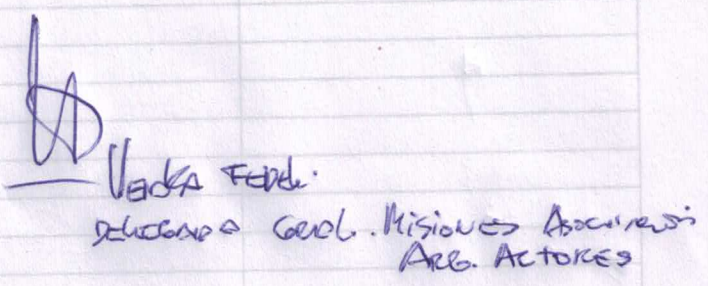 Fedel.
Delegado Gral. Misiones Asociación
Arg. Actores